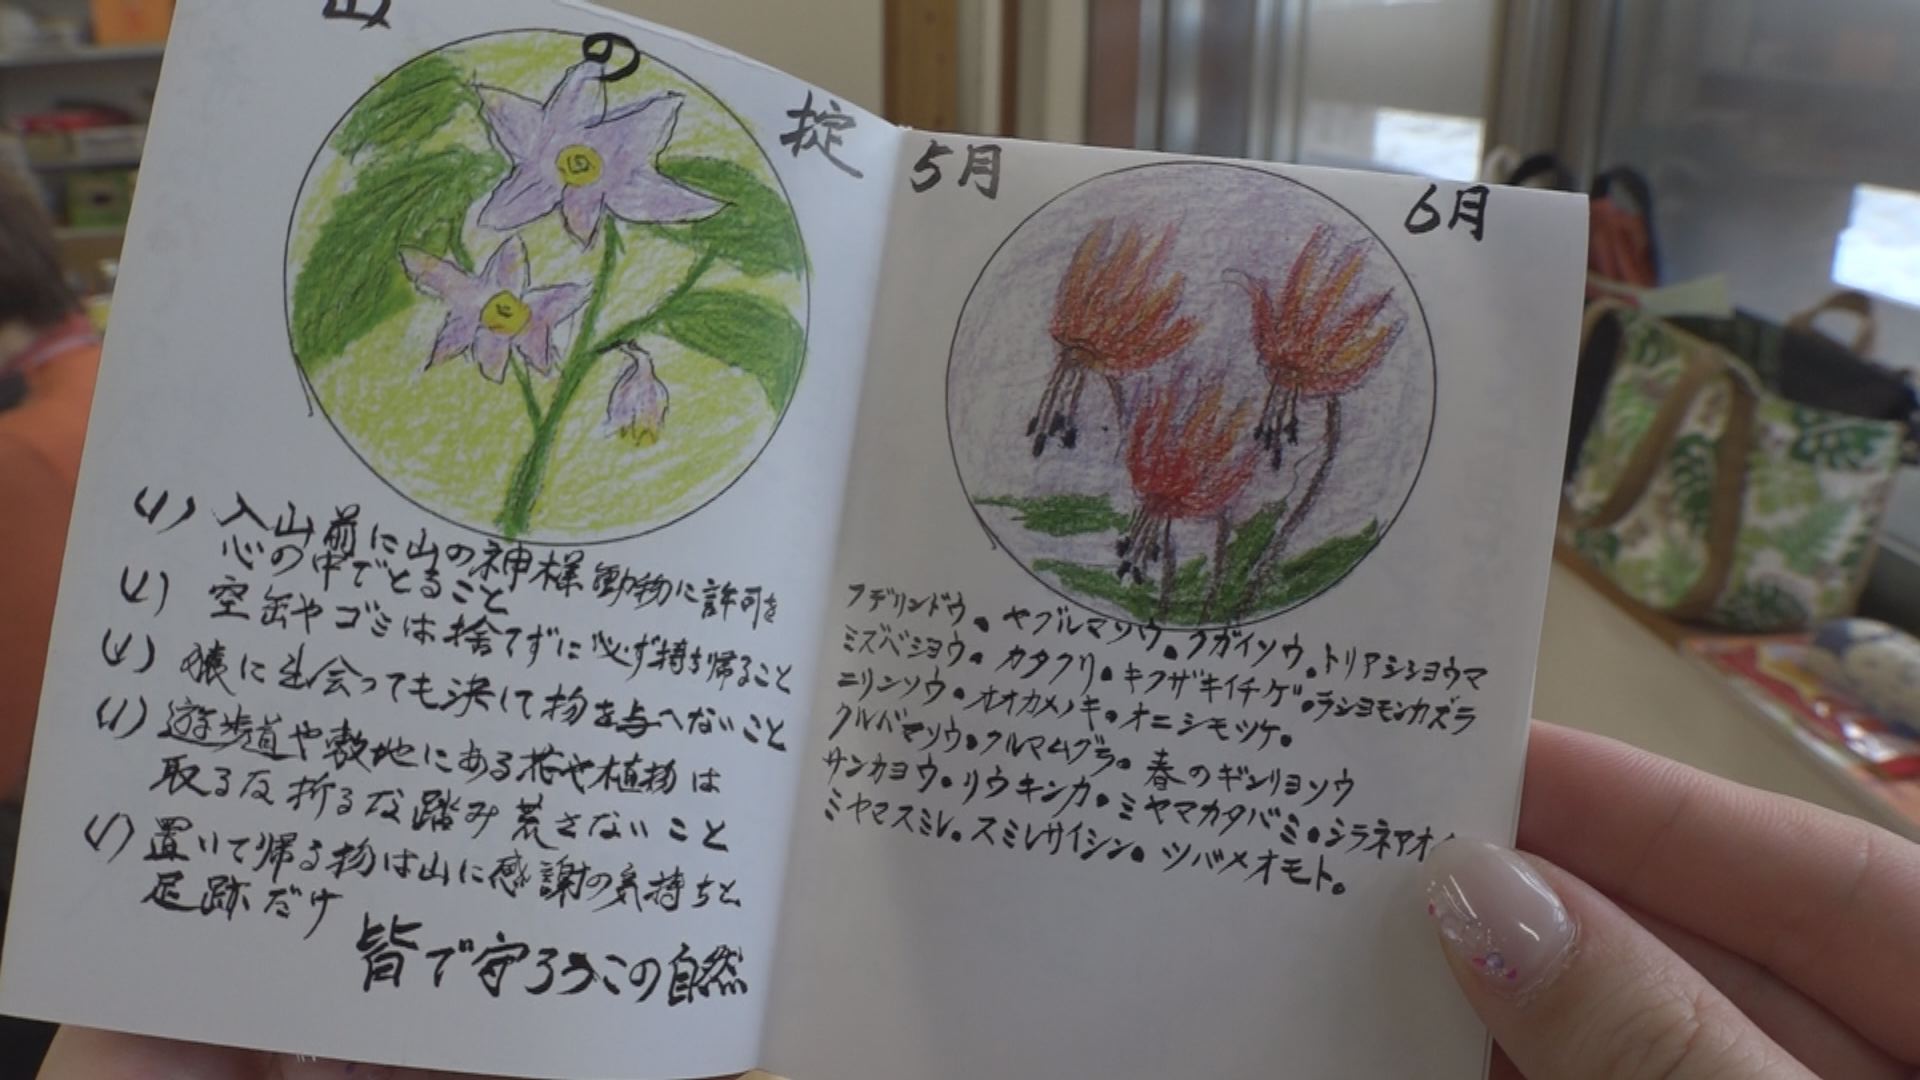 山の掟
(1) 入山前に山の神様動物に許可を
心の中でとること
(1) 空缶やゴミは捨てずに必ず持ち帰ること
(1) 猿に出会っても決して物を与へないこと
(1) 遊歩道や敷地にある花や植物は
取るな折るな踏み荒さないこと
(1) 置いて帰る物は山に感謝の気持ちと
足跡だけ
皆で守ろうこの自然
5月 6月
フデリンドウ。ヤブルマソウ。クガイソウ。トリアシショウマ
ミズベショウ。カタクリ。キクザキイチゲ。ラショモンカズラ
ニリンソウ。オオカメノキ。オニシモツケ。
クルバマソウ。クルマムグラ。春のギンリョソウ
サンカヨウ。リウキンカ。ミヤマカタバミ。シラネアオ
ミヤマスミレ。スミレサイシン。ツバメオモト。